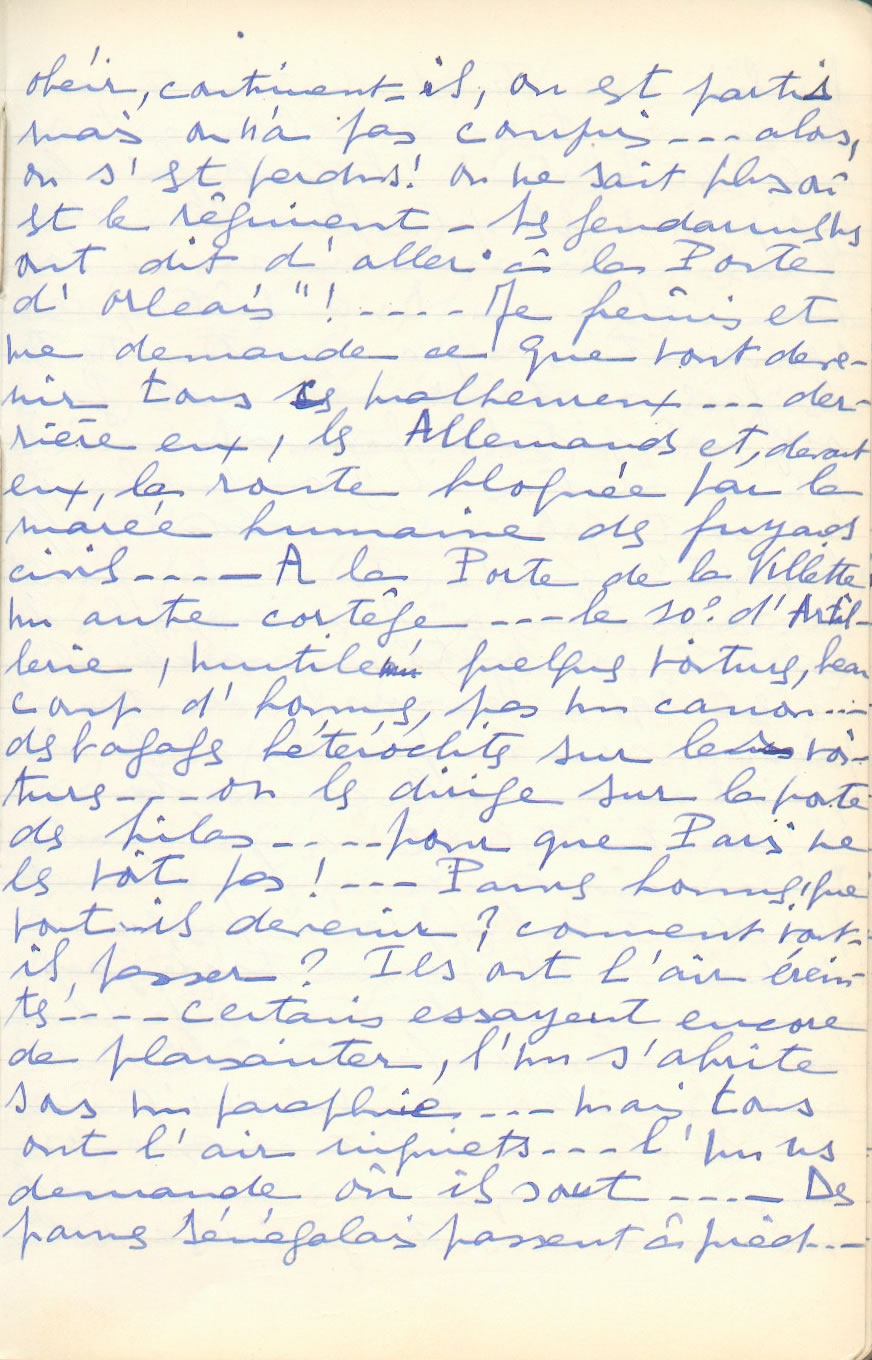 obéir, continuent-ils, on est partis
mais on n'a pas compris --- alors,
on s'est perdus! on ne sait plus où
est le régiment - les gendarmes
ont dit d'aller à la Porte
d'Orléans"! ---- Je frémis et
me demande ce que vont deve-
nir tous ces malheureux --- der-
rière eux, les Allemands et, devant
eux, la route bloquée par la
marée humaine des fuyards
civils ---- A la Porte de la Villette
un autre cortège --- le 10e d'Artil-
lerie, mutilé quelques voitures, beau
coup d'hommes, pas un canon ---
des bagages hétéroclites sur les voi-
tures --- on les dirige sur la porte
des Lilas ---- pour que Paris ne
les voit pas! --- Pauvres hommes, que
vont-ils devenir? comment vont-
ils passer? Ils ont l'air érein-
tés ---- certains essayent encore
de plaisanter, l'un s'abrite
sous un parapluie --- mais tous
ont l'air inquiets --- l'un us
demande où ils sont ---- Des
pauvres Sénégalais passent à pied ---